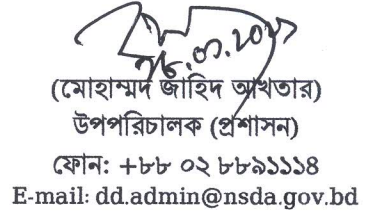 (মোহাম্মদ জাহিদ আখতার)
উপপরিচালক (প্রশাসন)
ফোন: +৮৮ ০২ ৮৮৯১১১৪
E-mail: dd.admin@nsda.gov.bd